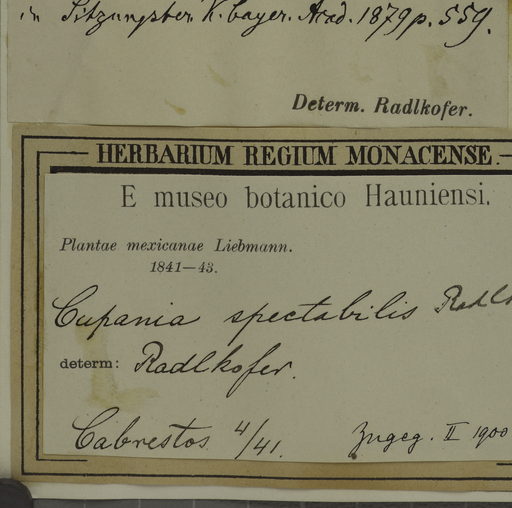 in Sitzungsber. K. bayer. Acad. 1879 p. 559.
Determ. Radlkofer.
HERBARIUM REGIUM MONACENSE.
E museo botanico Hauniensi.
Plantae mexicanae Liebmann.
1841—43.
Cupania spectabilis Radlk
determ: Radlkofer.
Cabrestos 4/41. Zugeg. II 1900